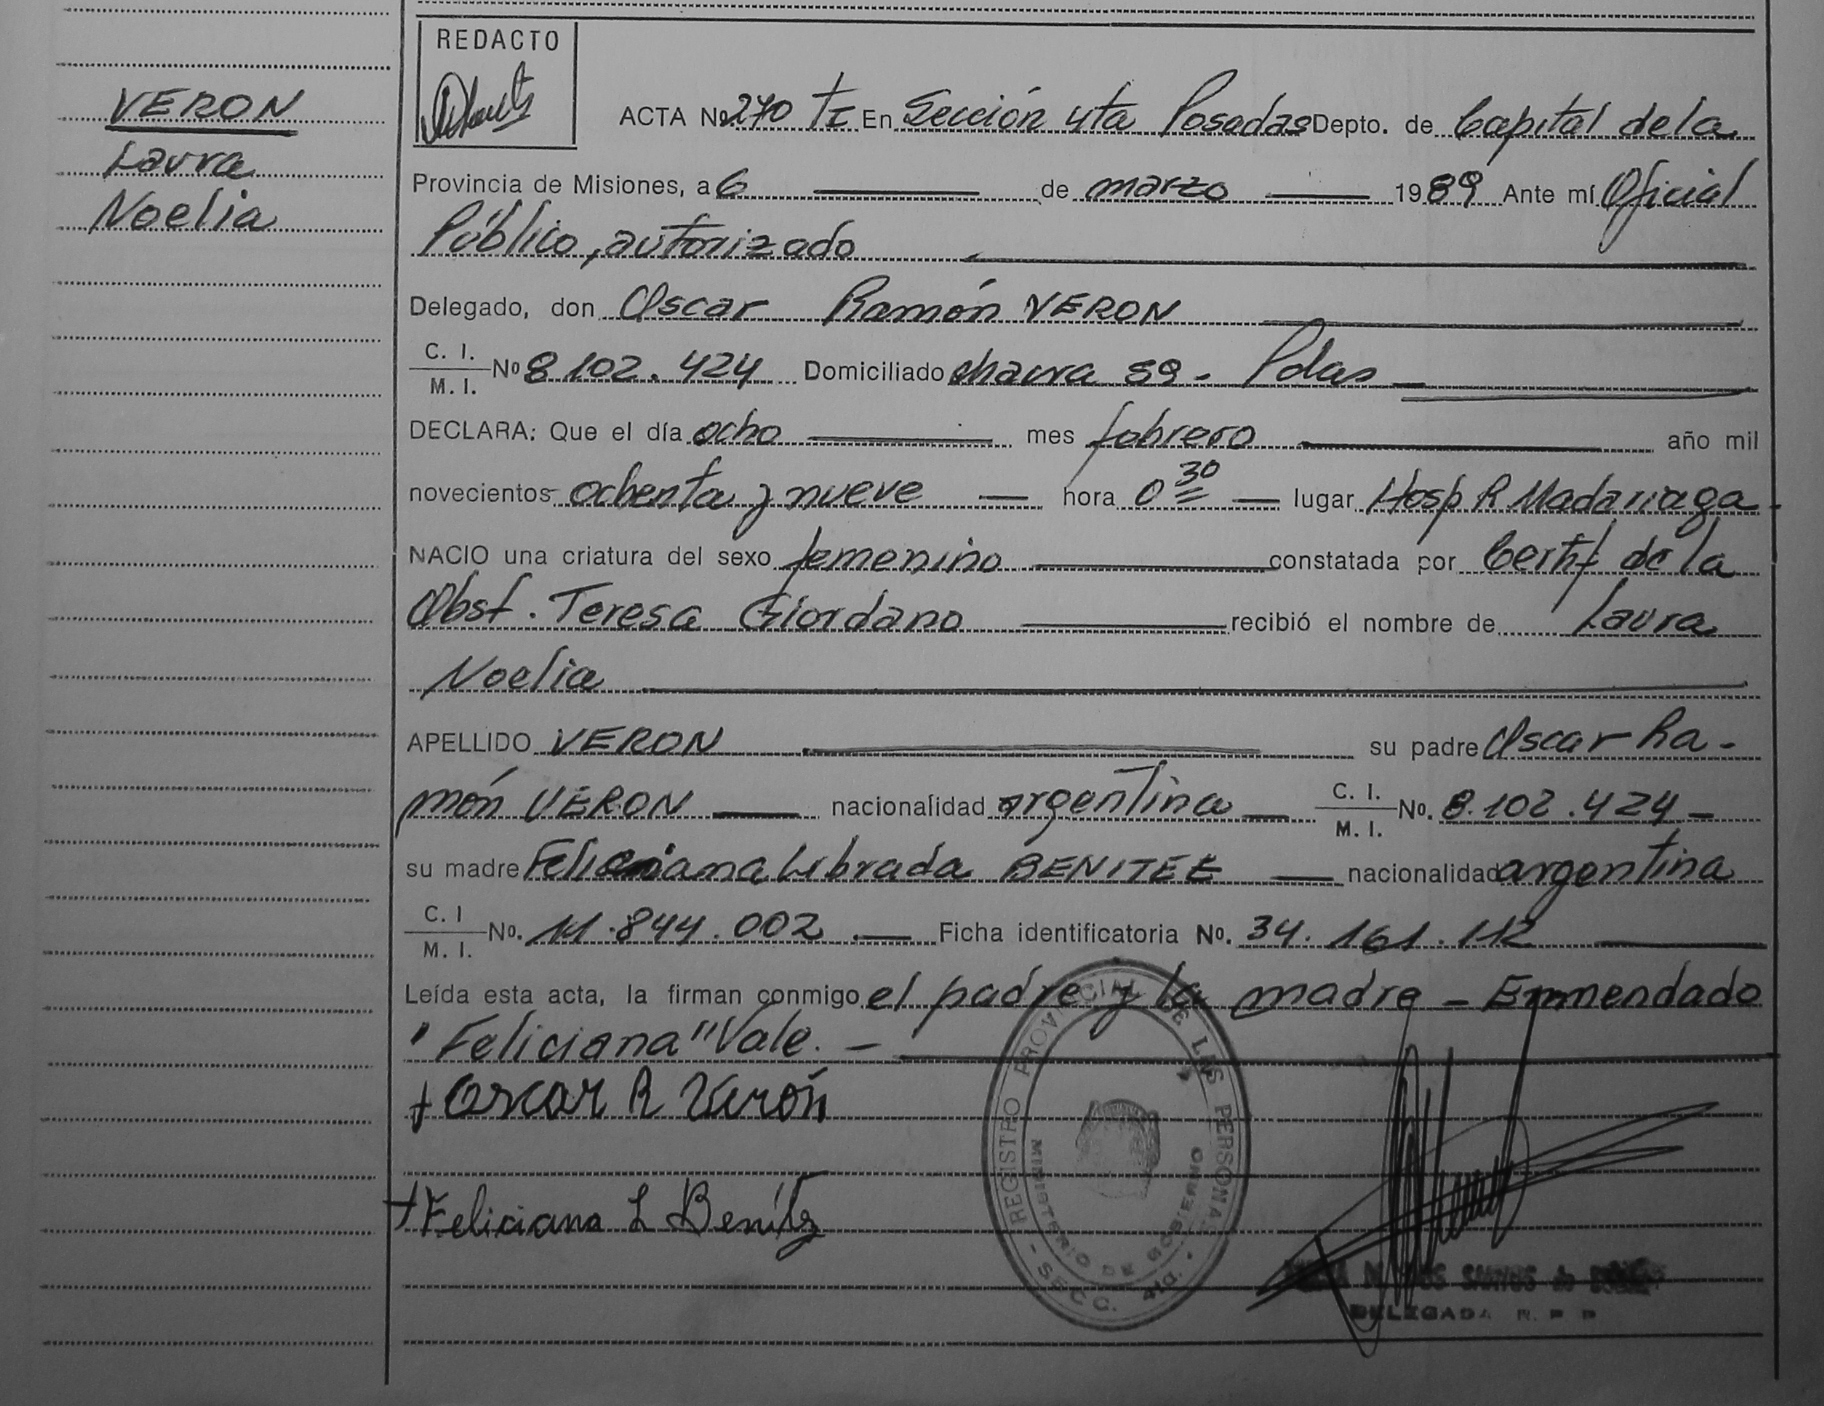 VERON
Laura
Noelia
REDACTO
ACTA No 270 TI En Sección 4ta Posadas Depto. de Capital de la
Provincia de Misiones, a 6 de marzo 1989 Ante mí Oficial
Público, autorizado
Delegado, don Oscar Ramón VERON
C. I.
M. I.
No 8.102.424 Domiciliado chacra 59 - Pdas
DECLARA: Que el día ocho mes febrero año mil
novecientos ochenta y nueve hora 0 30 lugar Hosp R Madariaga
NACIO una criatura del sexo femenino constatada por Certif de la
Obst. Teresa Giordano recibió el nombre de Laura
Noelia
APELLIDO VERON su padre Oscar Ra-
món VERON nacionalidad argentina C. I. M. I. No. 8.102.424
su madre Feliciana Librada BENITEZ nacionalidad argentina
C. I
M. I.
No. 11.844.002 Ficha identificatoria No. 34.161.112
Leída esta acta, la firman conmigo el padre y la madre - Enmendado
"Feliciana" Vale. -
Oscar R Verón
Feliciana L Benítez
REGISTRO PROVINCIAL DE LAS PERSONAS
MINISTERIO DE GOBIERNO
- SECC. 4ta.
SANTOS de
DELEGADA R. P. P